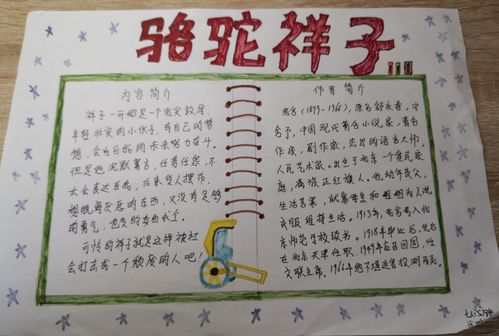 骆驼祥子
内容简介
祥子一开始是一个老实敦厚、
年轻壮实的小伙子，有自己的梦
想，会为自己的未来努力奋斗。
但是他沉默寡言，任劳任怨，不
太会表达自己，后来贪人摆布，
想挽救失去的东西，又没有足够
的勇气，
可怜的祥子就是这样被社
会打击成一个颓废的人吧！
作者简介
老舍(1899-1966)，原名舒庆春，字
舍予，中国现代著名小说家，著名
作家，剧作家，杰出的语言大师，
人民艺术家。出生于北京一个贫民家
庭，满族正红旗人。他幼年丧父，
生活苦寒，就靠母亲和为人洗
衣服维持生活。1913年，老舍考入北
京师范学校读书。1918年毕业后，先后
在北京天津任职，1949年应召回国，任
文联主席。1966年他不堪迫害投湖而死。